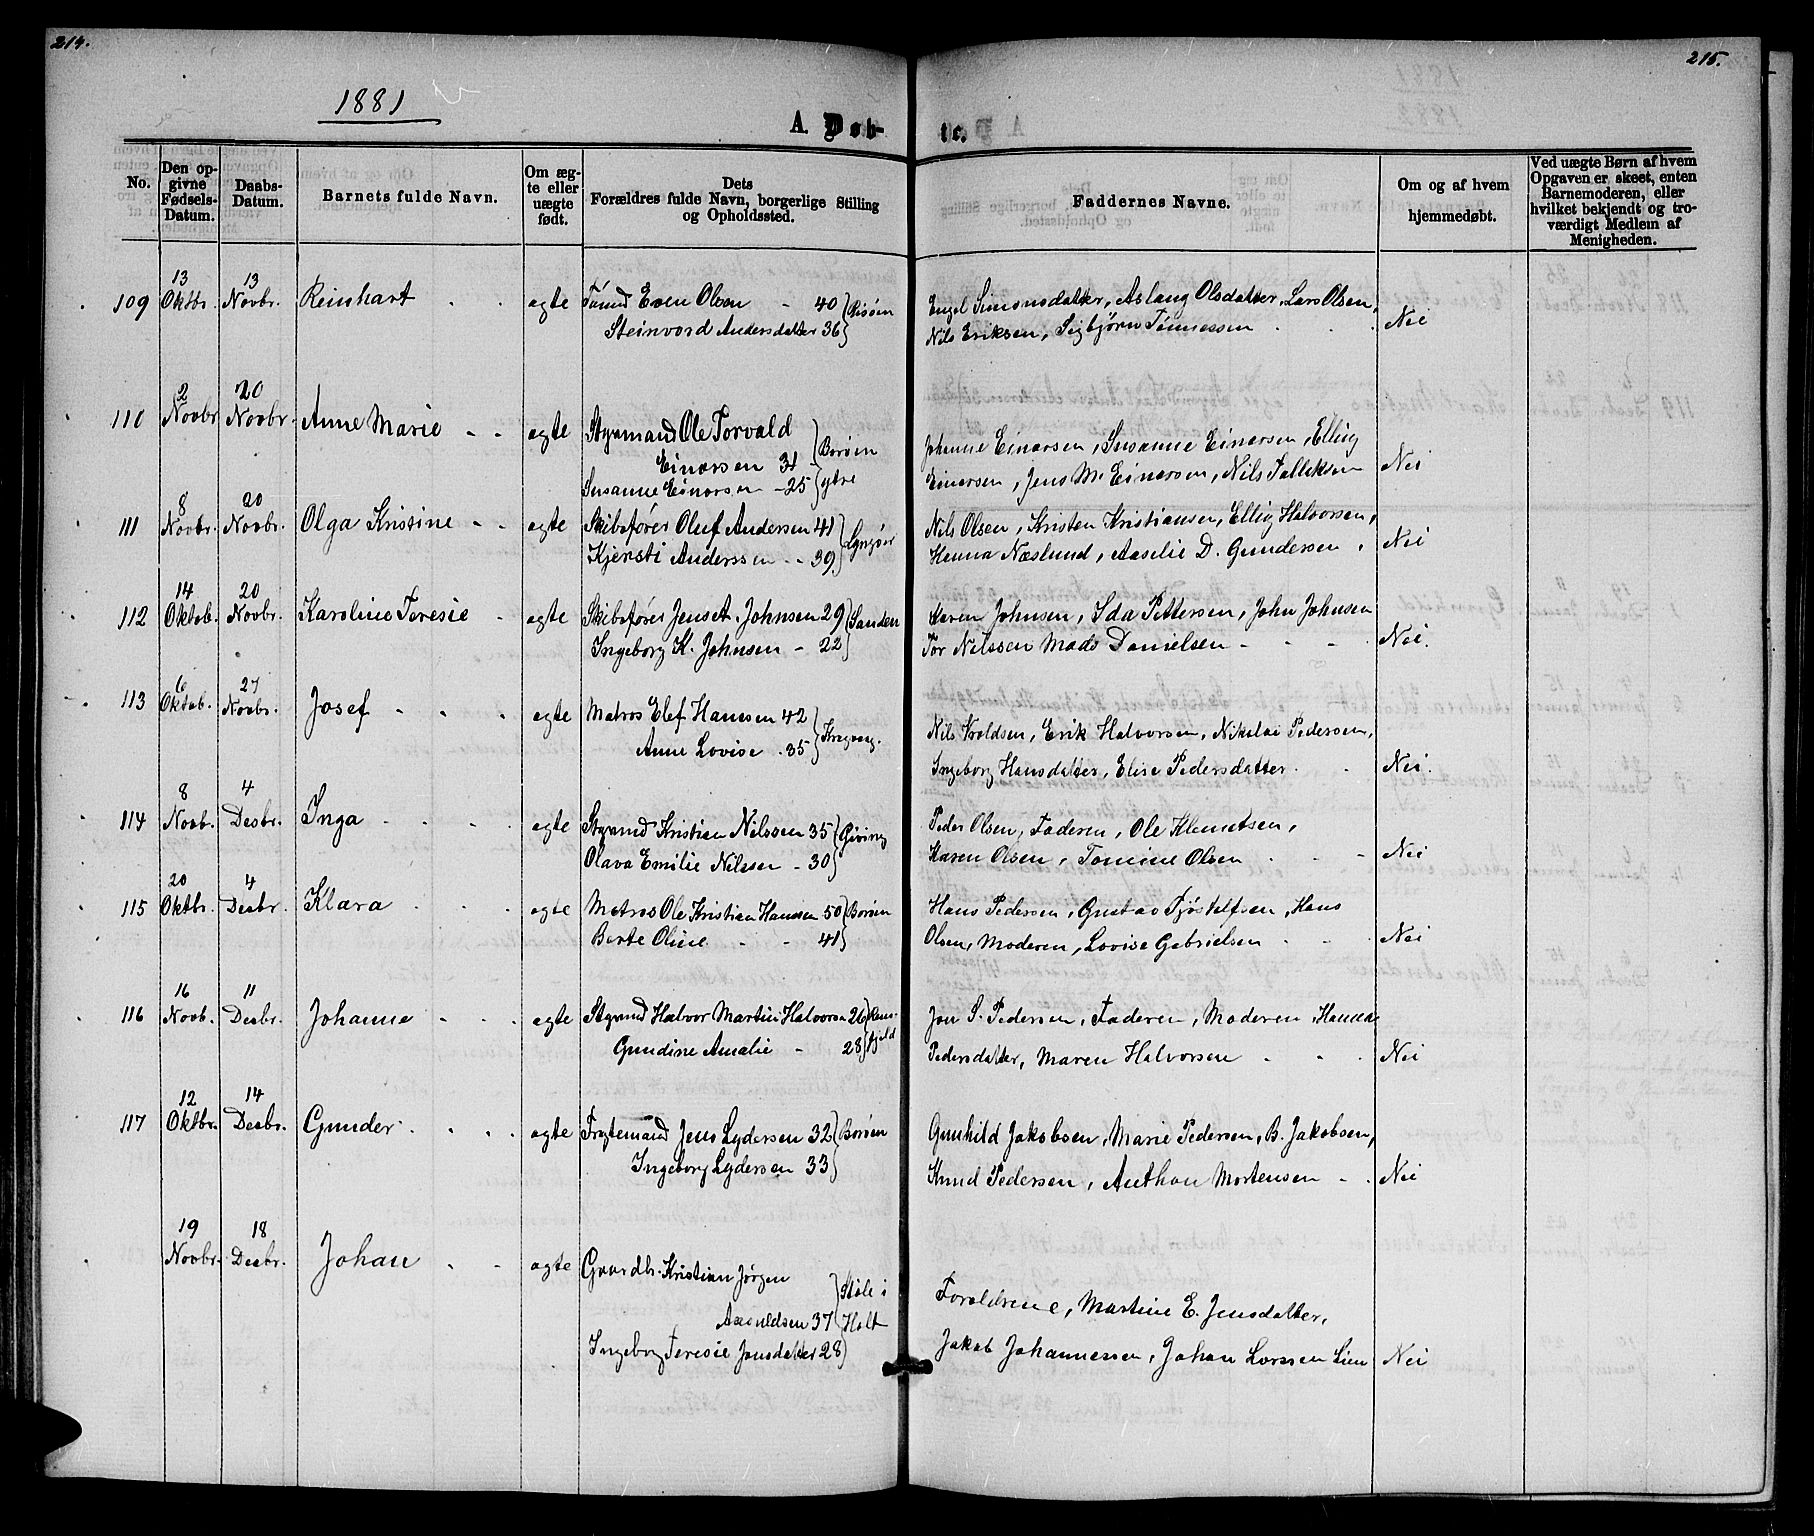 214.
215.
1881
A. Døb-
te.
No.
Den op-
givne
Fødsels-
Datum.
Daabs-
Datum.
Barnets fulde Navn.
Om æg-
te eller
uægte
født.
Dets
Forældres fulde Navn, borgerlige Stilling
og Opholdssted.
Faddernes Navne.
Om og af hvem
hjemmedøbt.
Ved uægte Børn af hvem
Opgaven er skeet, enten
Barnemoderen, eller
hvilket bekjendt og tro-
værdigt Medlem af
Menigheden.
13 13
109 Oktbr. Novbr. Reinhart - - ægte Tømmd Even Olsen - 40 Risøen
Steinvord Andersdatter 36
Engel Simonsdatter, Aslaug Olsdatter, Lars Olsen,
Nils Eriksen, Sigbjørn Tønnessen - - Nei
2 20
110 Novbr Novbr. Anne Marie - - ægte Styrmand Ole Torvald
Einarsen 31 Borøen
Susanne Einarsen - 25 ytre
Johanne Einarsen, Susanne Einarsen, Ellling
Einersen, Jens M. Einersen, Nils Falleksen Nei
8 20
111 Novbr. Novbr. Olga Kristine - - ægte Skibsfører Oluf Andersen 41 Lyngør
Kjersti Anderssen - - 39
Nils Olsen, Kristen Kristiansen, Elling Halvorsen,
Hanna Næslund, Aaselie D. Gundersen, Nei
14 20
112 Oktob. Novbr. Karoline Teresie - ægte Skibsfører Jens A. Johnsen 29 Sanden
Ingeborg K. Johnsen - 22
Karen Johnsen, Ida Pettersen, John Johnsen
Tor Nilssen Mads Danielsen - - - Nei.
6 27
113 Oktob. Novbr. Josef - - - ægte Matros Elef Hanssen 42 Kragvaag.
Anne Lovise . 35
Nils Vroldsen, Erik Halvorsen, Nikolai Pedersen,
Ingeborg Hansdatter, Elise Pedersdatter. - Nei.
8 4
114 Novb. Desbr. Inga - - - - ægte Styrmd Kristian Nilssen 35 Giving
Olava Emilie Nilssen - 30
Peder Olsen, Faderen, Ole Klemetsen,
Karen Olsen, Tomine Olsen - - - Nei
20 4
115 Oktbr. Desbr. Klara - - - ægte Matros Ole Kristian Hanssen 50 Borøen
Berte Oline - - 41
Hans Pedersen, Gustav Tjøstelfsen, Hans
Olsen, Moderen, Lovise Gabrielsen - - - Nei
16 11
116 Novb. Desbr. Johanne - - - ægte Styrmd Halvor Martin Halvorse 26
Gundine Amalie - 28 fjeld
Jon S. Pedersen, Faderen, Moderen, Hanna
Pedersdatter, Maren Halvorsen - - - Nei
12 14
117 Oktbr. Desbr. Gunder - - - - ægte Fragtemand Jens Lydersen 32 Borøen
Ingeborg Lydersen 33
Gunhild Jakobsen, Marie Pedersen, B. Jakobsen,
Knud Pedersen, Anthon Mortensen - - Nei
19 18
Novbr. Desbr. Johan - - ægte Gaardbr. Kristian Jørgen
Aasuldsen 37 Støle i
Holt
Ingeborg Teresie Jensdatter 28
Forældrene, Martine E. Jensdatter,
Jakob Johannessen, Johan Larssen Lien Nei